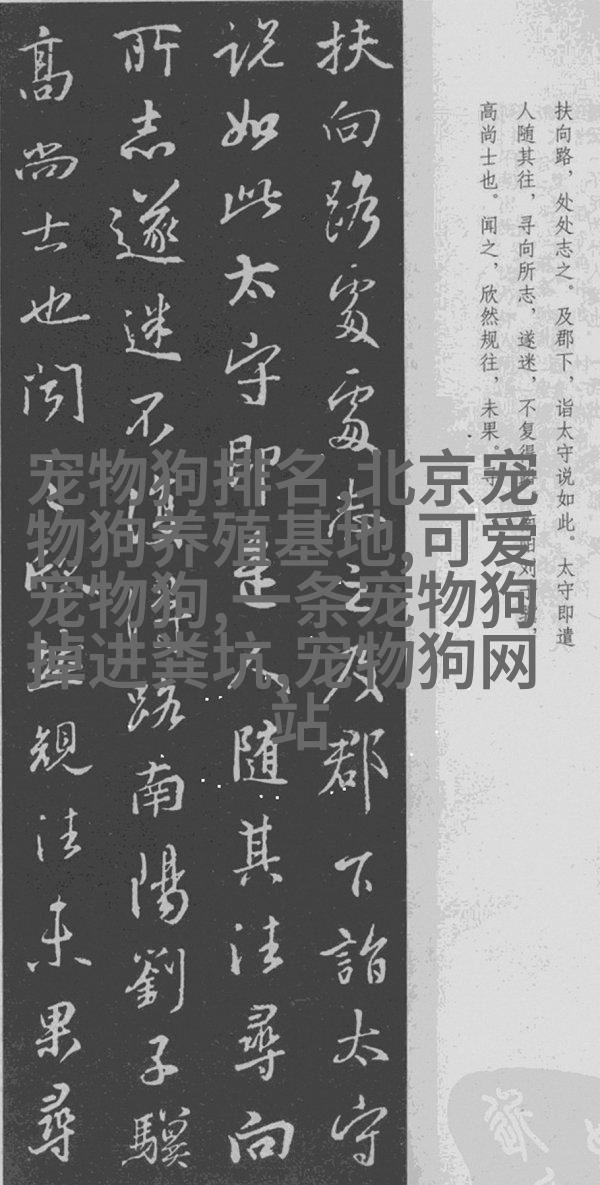 扶向路，处处志之。及郡下，诣太守说如此。太守即遣
人随其往，寻向所志，遂迷，不复得阳刘
高尚士也。闻之，欣然规往，未果。
扶向路處處志之及郡下詣太守
説如此太守即是人隨其往尋向
所志遂迷不復得路南陽劉子驥
髙尚士也聞之欣然規往未果尋
宠物狗排名,北京宠
物狗养殖基地,可爱
宠物狗,一条宠物狗
掉进粪坑,宠物狗网
站